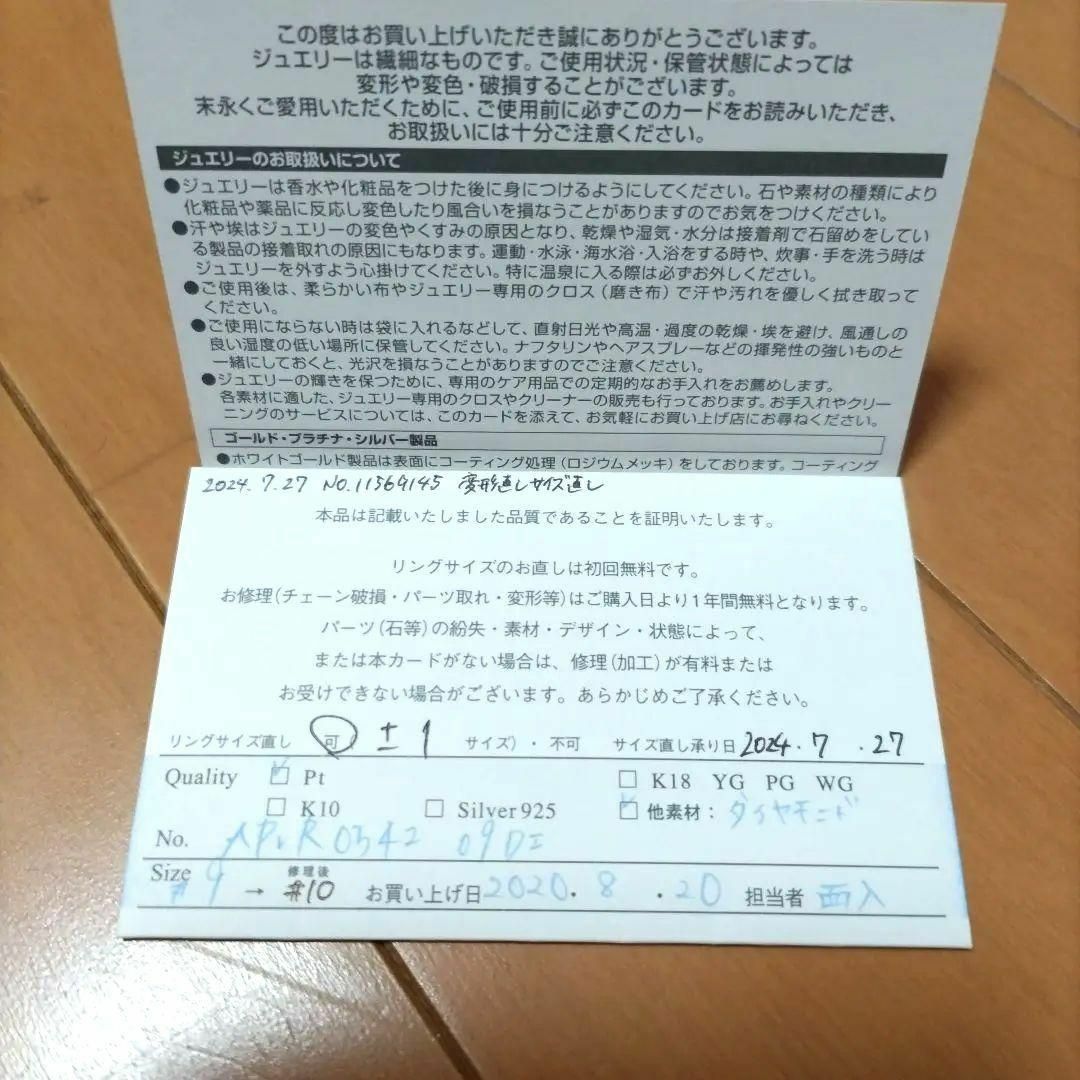 この度はお買い上げいただき誠にありがとうございます。
ジュエリーは繊細なものです。ご使用状況・保管状態によっては
変形や変色・破損することがございます。
末永くご愛用いただくために、ご使用前に必ずこのカードをお読みいただき、
お取扱いには十分ご注意ください。
ジュエリーのお取扱いについて
●ジュエリーは香水や化粧品をつけた後に身につけるようにしてください。石や素材の種類により
化粧品や薬品に反応し変色したり風合いを損なうことがありますのでお気をつけください。
●汗や埃はジュエリーの変色やくすみの原因となり、乾燥や湿気・水分は接着剤で石留めをしてい
る製品の接着取れの原因にもなります。運動・水泳・海水浴・入浴をする時や、炊事・手を洗う時は
ジュエリーを外すよう心掛けてください。特に温泉に入る際は必ずお外しください。
●ご使用後は、柔らかい布やジュエリー専用のクロス(磨き布)で汗や汚れを優しく拭き取って
ください。
●ご使用にならない時は袋に入れるなどして、直射日光や高温・過度の乾燥・埃を避け、風通しの
良い湿度の低い場所に保管してください。ナフタリンやヘアスプレーなどの揮発性の強いものと
一緒にしておくと、光沢を損なうことがありますのでご注意ください。
●ジュエリーの輝きを保つために、専用のケア用品での定期的なお手入れをお薦めします。
各素材に適した、ジュエリー専用のクロスやクリーナーの販売も行っております。お手入れやクリー
ニングのサービスについては、このカードを添えて、お気軽にお買い上げ店にお尋ねください。
ゴールド・プラチナ・シルバー製品
●ホワイトゴールド製品は表面にコーティング処理(ロジウムメッキ)をしております。コーティング
2024.7.27 NO.11569145 変形直しサイズ直し
本品は記載いたしました品質であることを証明いたします。
リングサイズのお直しは初回無料です。
お修理(チェーン破損・パーツ取れ・変形等)はご購入日より1年間無料となります。
パーツ(石等)の紛失・素材・デザイン・状態によって、
または本カードがない場合は、修理(加工)が有料または
お受けできない場合がございます。あらかじめご了承ください。
リングサイズ直し 可 ±1 サイズ)・不可 サイズ直し承り日 2024.7.27
Quality ☑ Pt □ K18 YG PG WG
□ K10 □ Silver925 ☑ 他素材: ダイヤモンド
No. 0342
Size #9 → 修理後 #10 お買い上げ日 2020.8.20 担当者